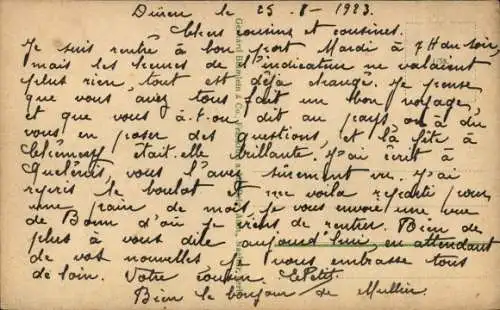 Düren le 25-8-1923.
Chers cousins et cousines.
Je suis rentré à bon port Mardi à 7H du soir,
mais les heures de l'indicateur ne valaient
plus rien, tout est déjà changé. Je pense
que vous avez tous fait un bon voyage,
et que vous a-t-on dit au pays, on a dû
vous en poser des questions, et la fête à
était-elle brillante. J'ai écrit à
vous l'avez sûrement vu. J'ai
repris le boulot et me voila reparti pour
une paire de mois, je vous envoie une vue
de Bonn d'où je viens de rentrer. Rien de
plus à vous dire aujourd'hui, en attendant
de vos nouvelles je vous embrasse tous
de loin. Votre cousin. LePetit.
Bien le bonjour de